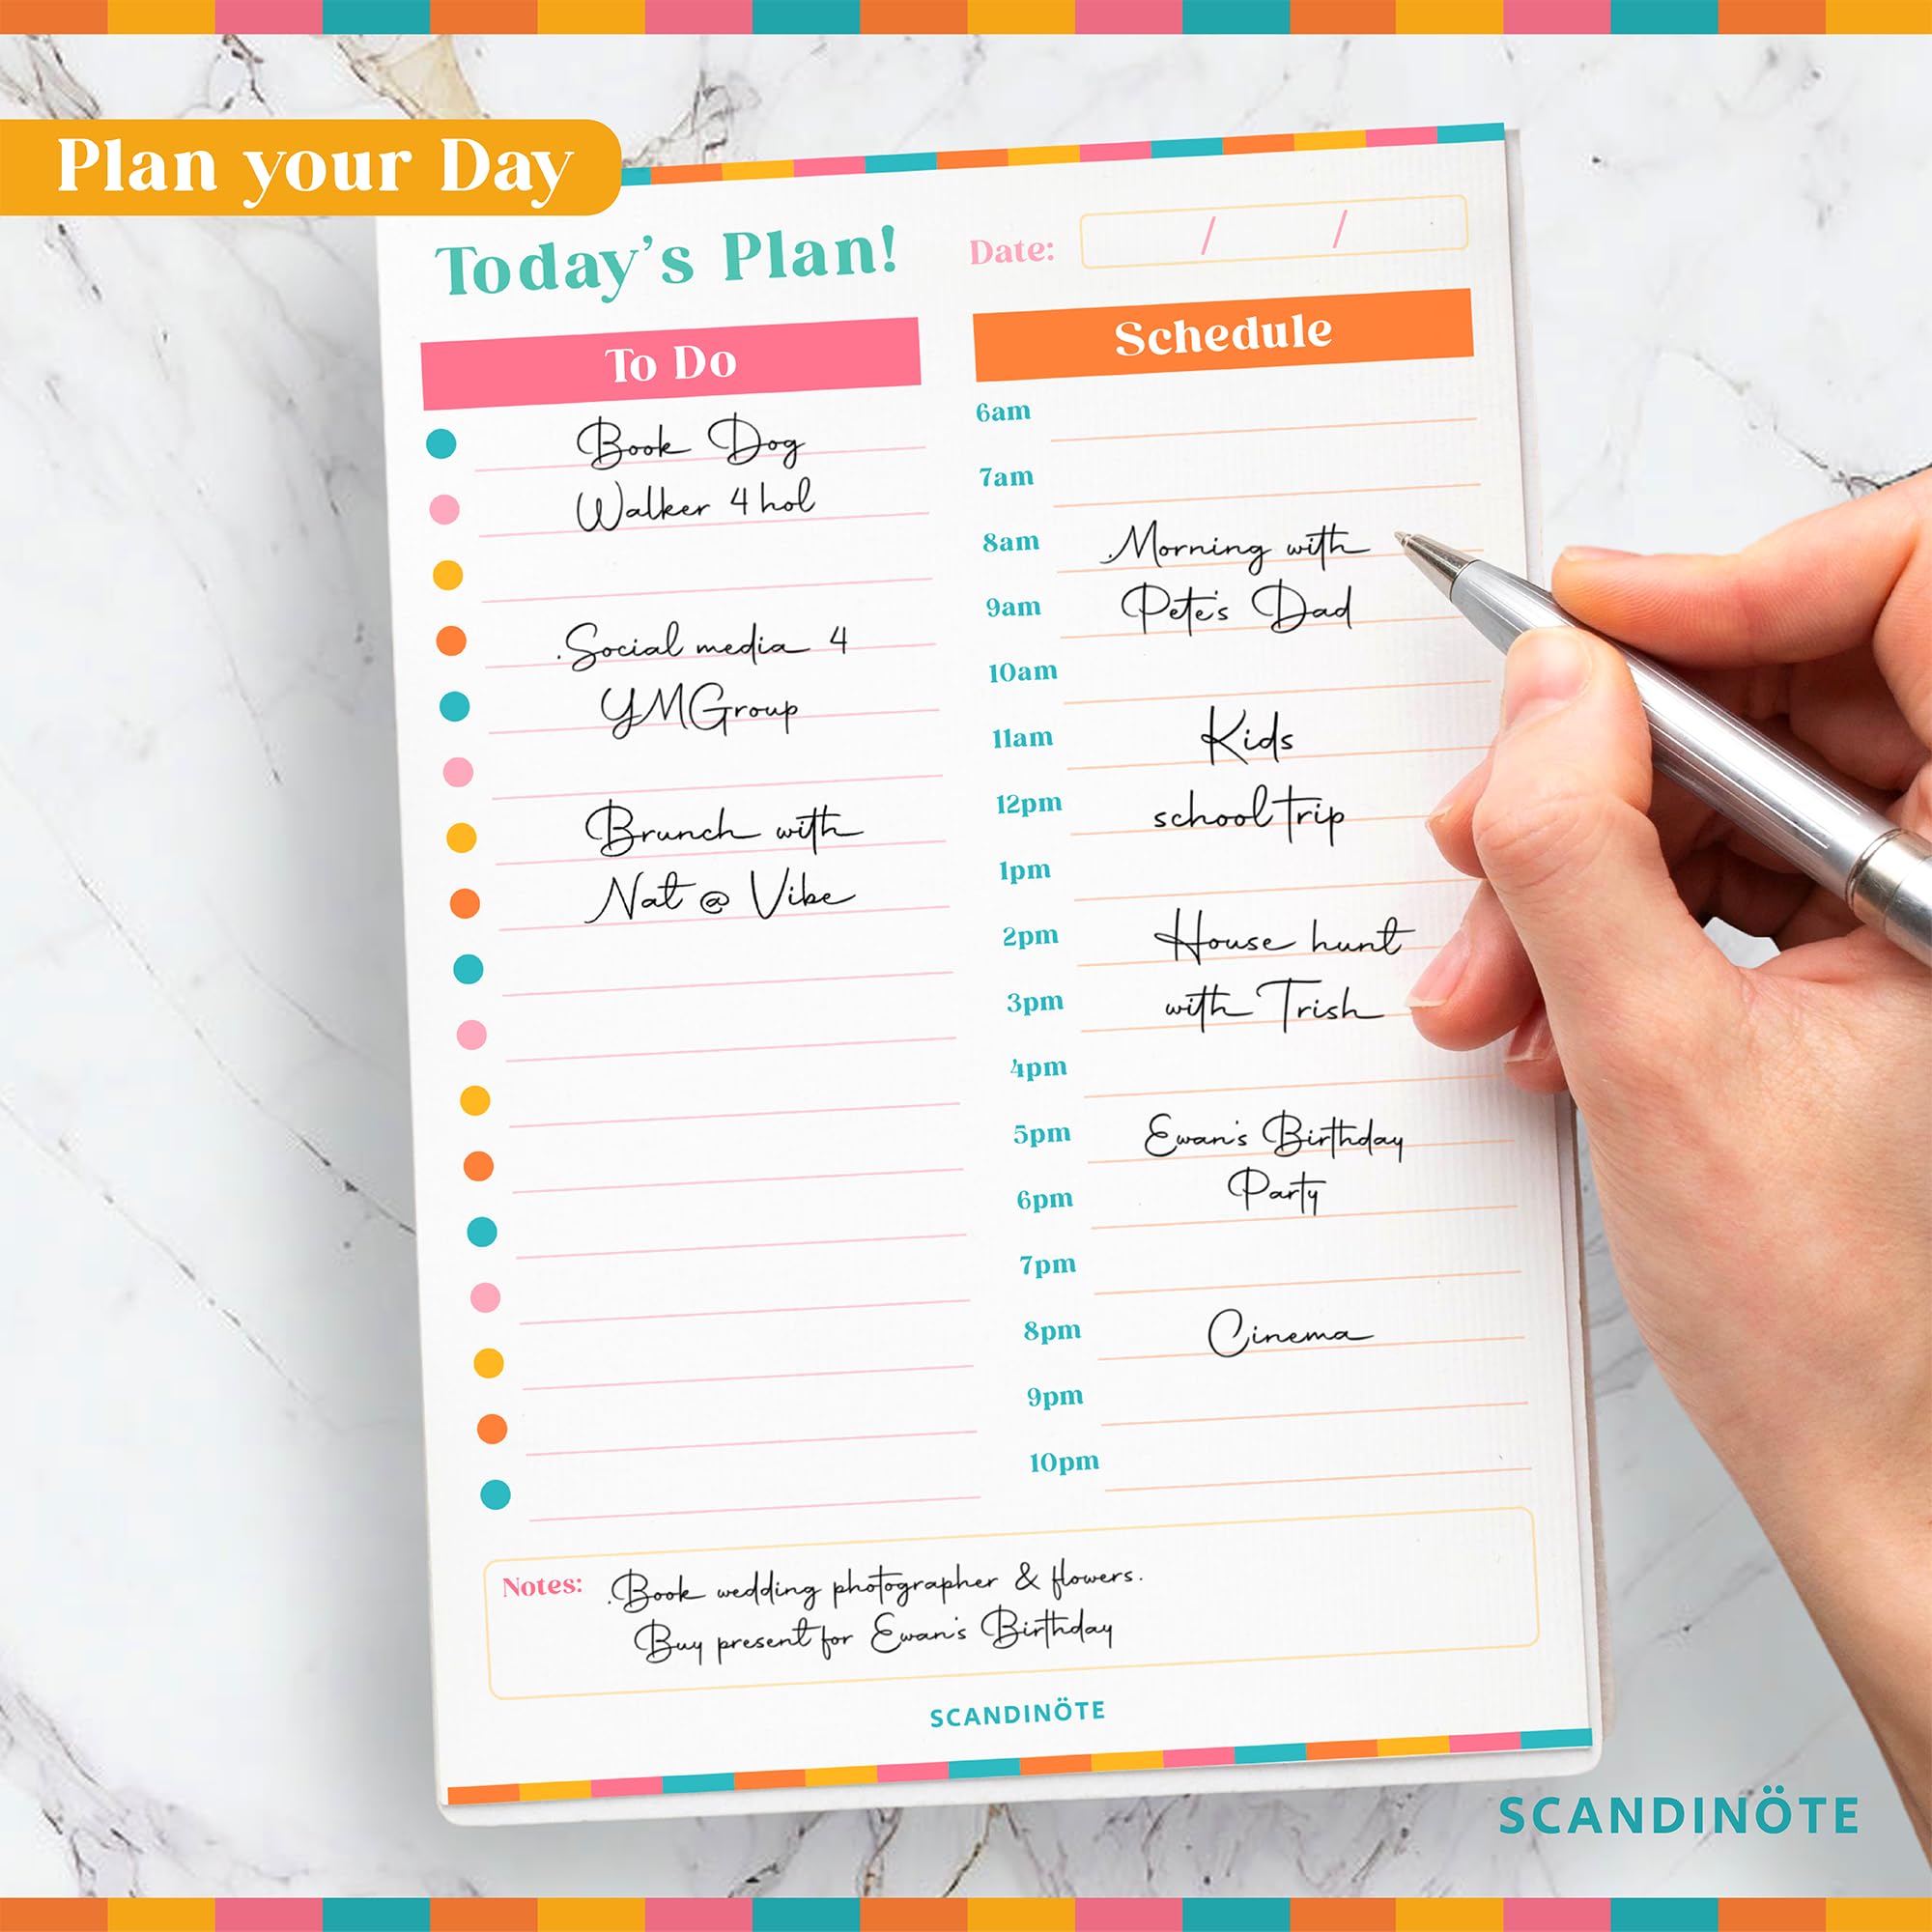 Plan your Day
Today's Plan!
Date: / /
To Do
Book Dog
Walker 4 hol
Social media 4
YMGroup
Brunch with
Nat @ Vibe
Schedule
6am
7am
8am Morning with
9am Pete's Dad
10am
11am Kids
12pm school trip
1pm
2pm House hunt
3pm with Trish
4pm
5pm Ewan's Birthday
6pm Party
7pm
8pm Cinema
9pm
10pm
Notes: Book wedding photographer & flowers.
Buy present for Ewan's Birthday
SCANDINÖTE
SCANDINÖTE